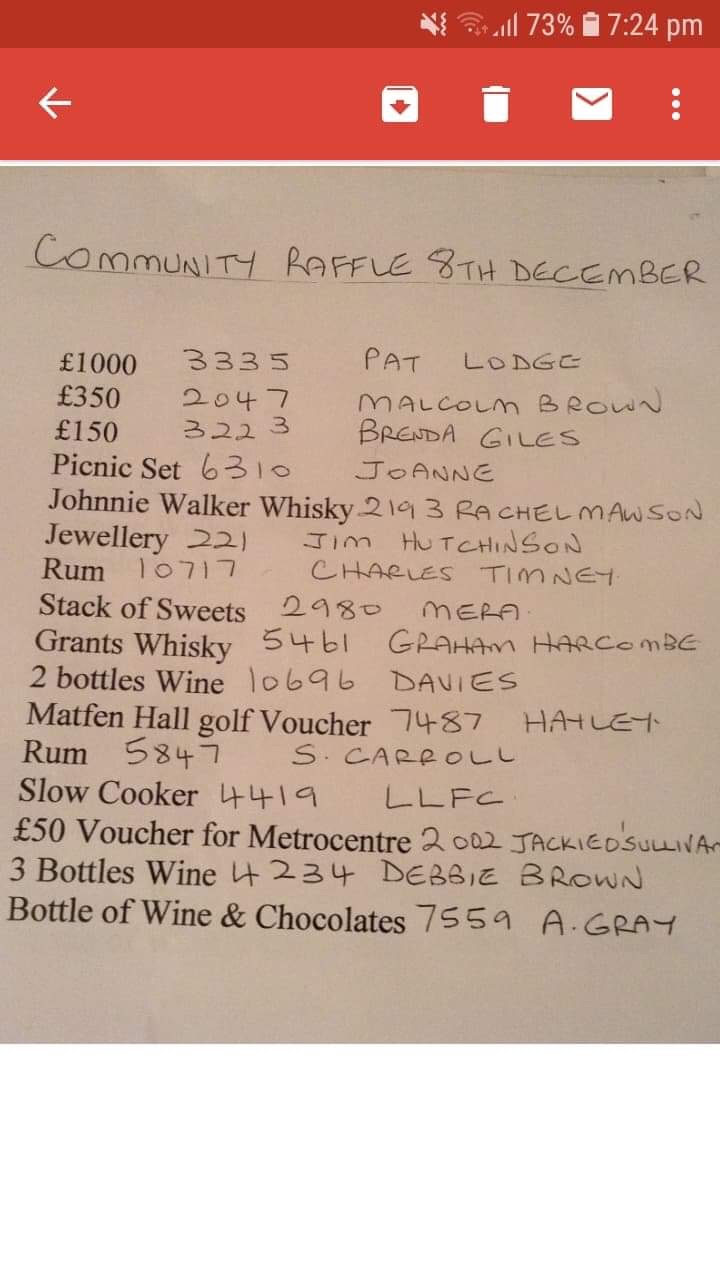 73% 7:24 pm
COMMUNITY RAFFLE 8TH DECEMBER
£1000 3335 PAT LODGE
£350 2047 MALCOLM BROWN
£150 3223 BRENDA GILES
Picnic Set 6310 JOANNE
Johnnie Walker Whisky 2193 RACHEL MAWSON
Jewellery 221 JIM HUTCHINSON
Rum 10717 CHARLES TIMNEY
Stack of Sweets 2980 MERA
Grants Whisky 5461 GRAHAM HARCOMBE
2 bottles Wine 10696 DAVIES
Matfen Hall golf Voucher 7487 HAYLEY
Rum 5847 S. CARROLL
Slow Cooker 4419 LLFC
£50 Voucher for Metrocentre 2002 JACKIE O'SULLIVAN
3 Bottles Wine 4234 DEBBIE BROWN
Bottle of Wine & Chocolates 7559 A. GRAY